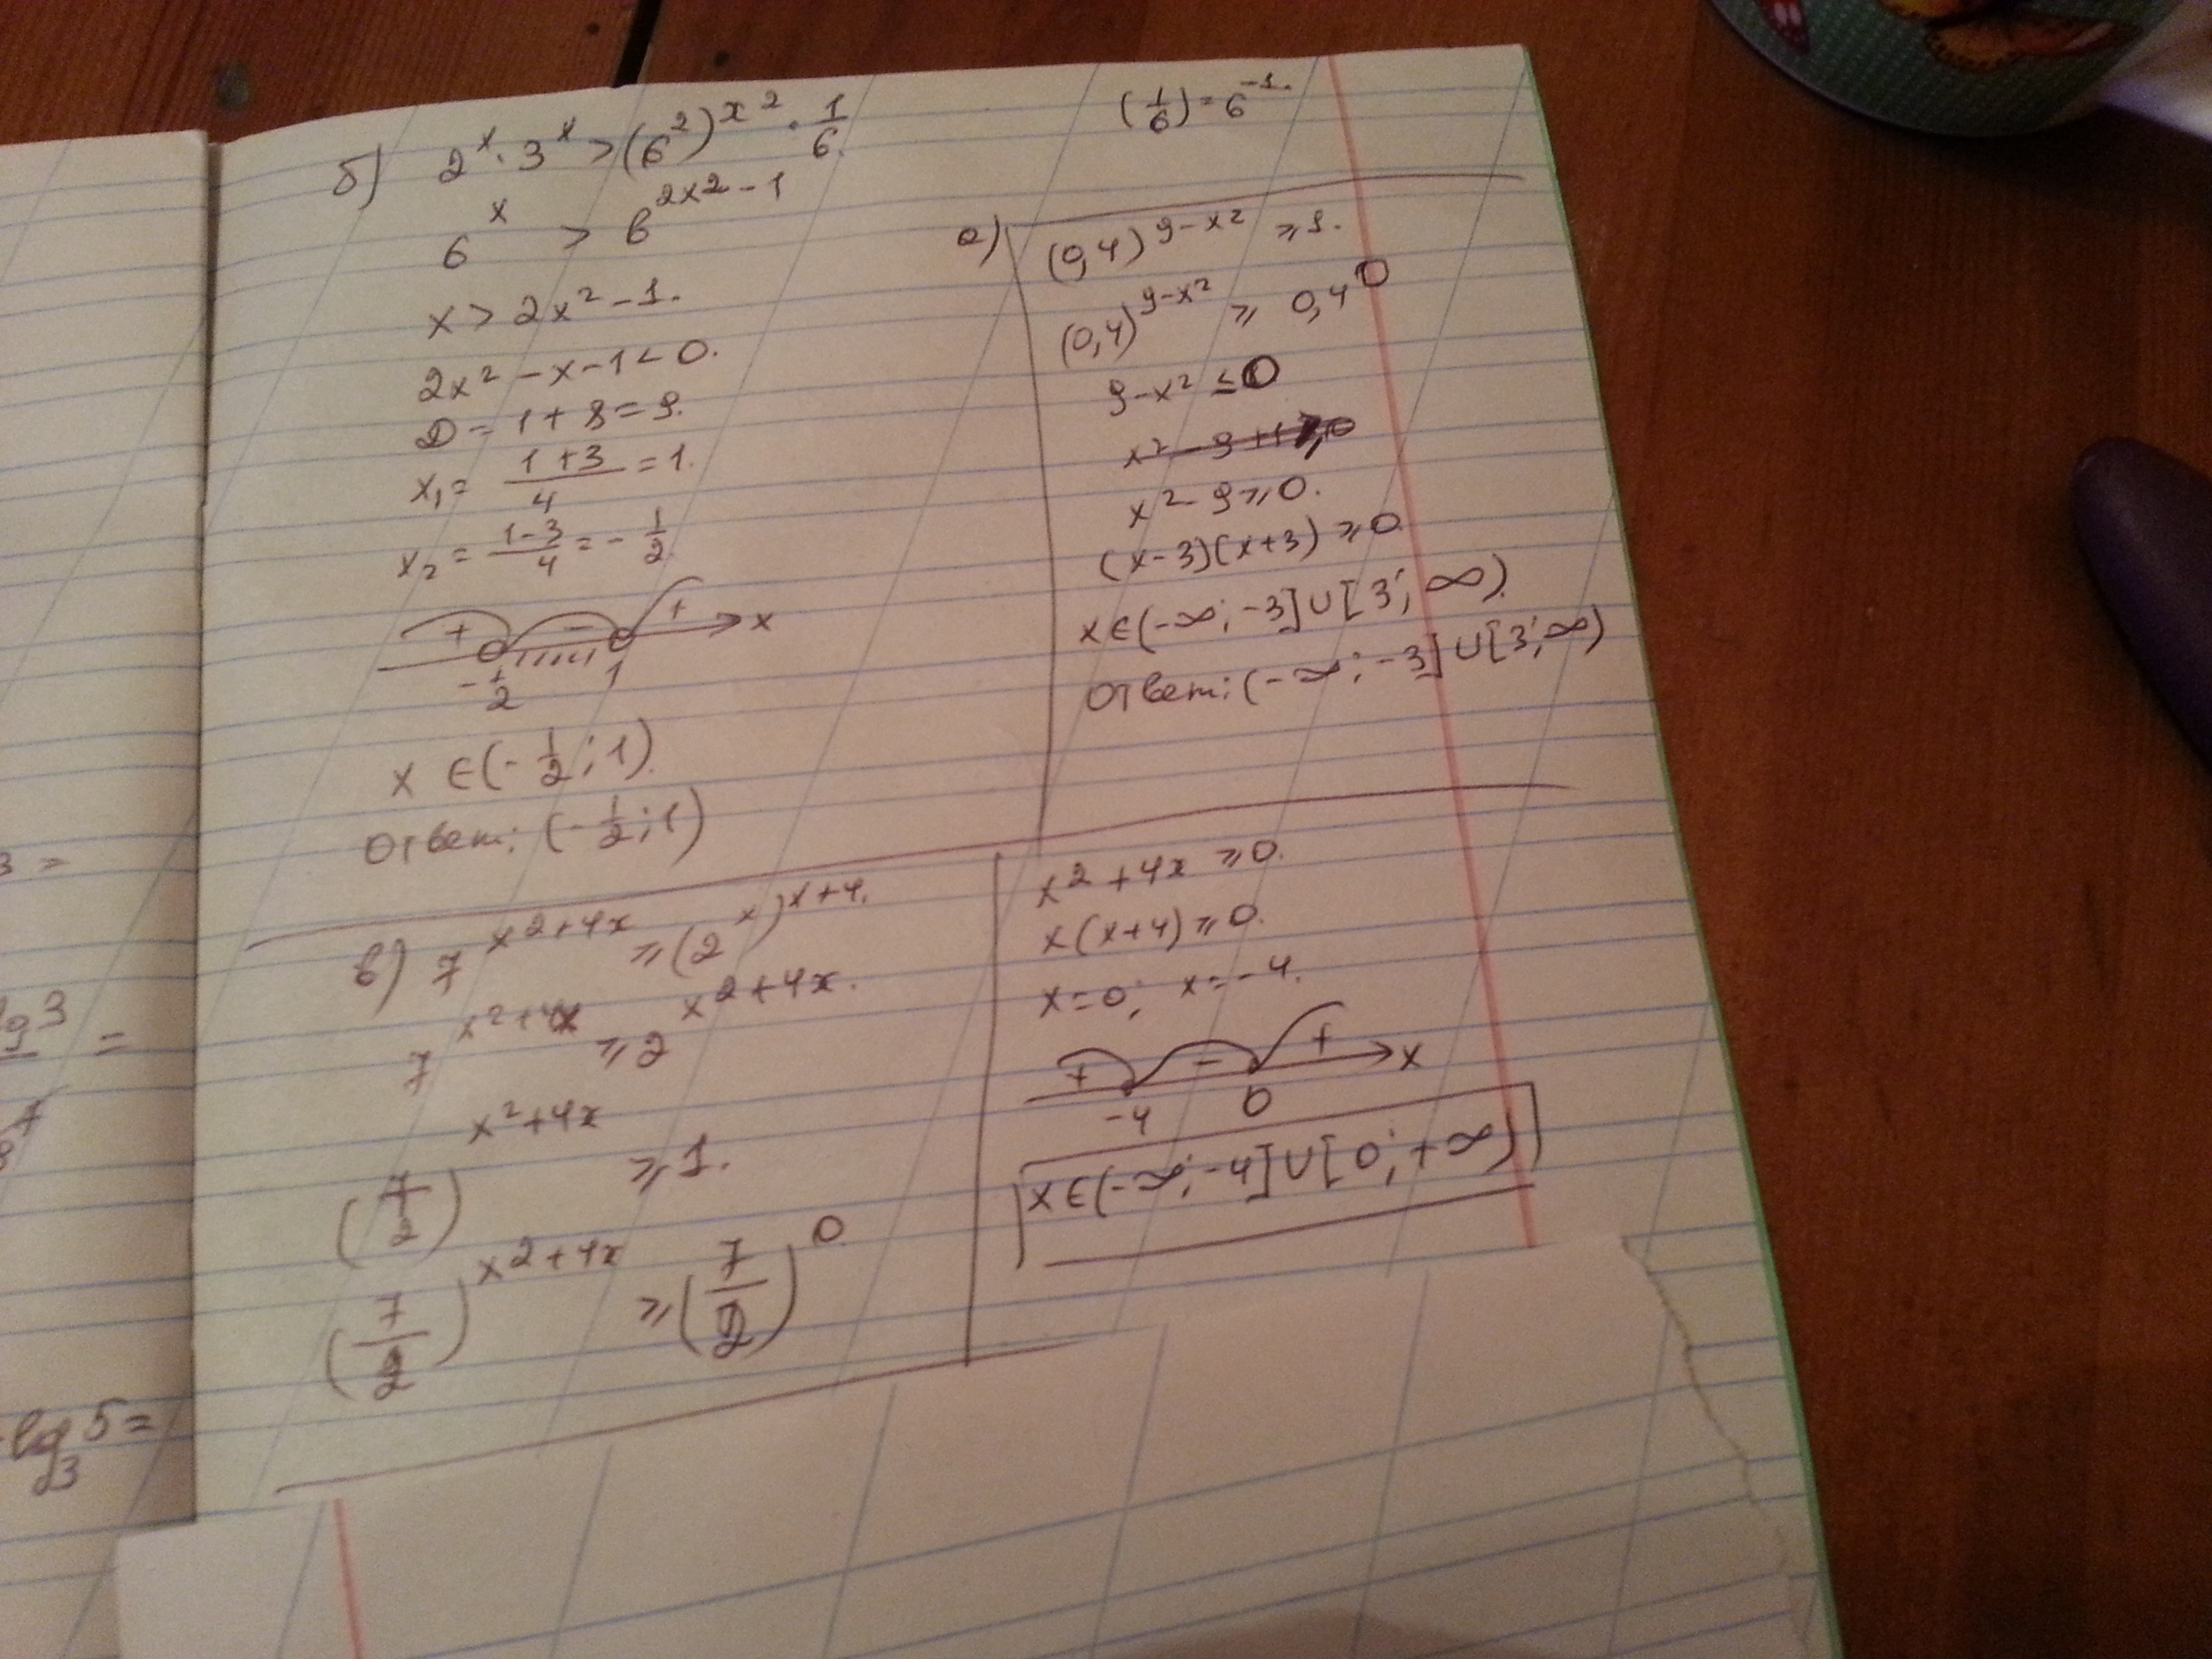 3 =
lg 3 =
7
-lg₃5=
б) 2ˣ·3ˣ>(6²)ˣ²·1/6.
(1/6)=6⁻¹.
6ˣ > 6^(2x2-1)
x> 2x²-1.
2x²-x-1<0.
D=1+8=9.
x₁= (1+3)/4 =1.
x₂= (1-3)/4 = -1/2.
+ - + x
-1/2 1
x ∈(-1/2;1).
Ответ: (-1/2;1)
а) (0,4)^(9-x²) ⩾1.
(0,4)^(9-x²) ⩾ 0,4⁰
9-x² ≤0
x²-9⩾0.
(x-3)(x+3)⩾0.
x∈(-∞;-3]∪[3; ∞).
Ответ: (-∞;-3]∪[3;∞)
в) 7^(x2+4x) ⩾(2ˣ)^(x+4).
7^(x²+4x) ⩾2^(x2+4x).
(7/2)^(x²+4x) ⩾1.
(7/2)^(x2+4x) ⩾(7/2)⁰
x2+4x ⩾0.
x(x+4)⩾0.
x=0; x=-4.
+ - + x
-4 0
x∈(-∞;-4]∪[0;+∞)